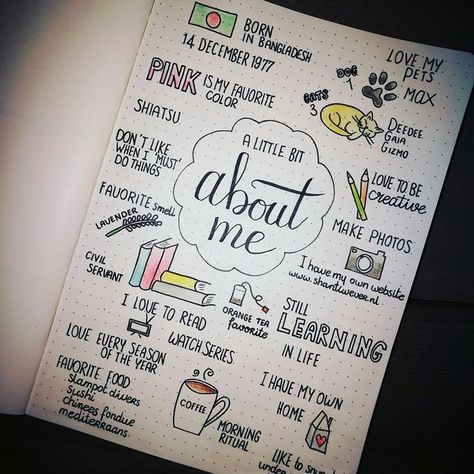 BORN
IN BANGLADESH
14 DECEMBER 1977
LOVE MY
PETS
DOG
1
MAX
CATS
3
DEEDEE
GAIA
GIZMO
PINK IS MY FAVORITE
COLOR
SHIATSU
DON'T LIKE
WHEN I 'MUST'
DO THINGS
A LITTLE BIT
about
me
LOVE TO BE
creative
FAVORITE smell
LAVENDER
MAKE PHOTOS
I have my own website
www.shantiwever.nl
CIVIL
SERVANT
I LOVE TO READ
ORANGE TEA
favorite
STILL
LEARNING
IN LIFE
WATCH SERIES
LOVE EVERY SEASON
OF THE YEAR
FAVORITE FOOD
stampot divers
sushi
chinees fondue
mediterraans
COFFEE
MORNING
RITUAL
I HAVE MY OWN
HOME
LIKE TO
under